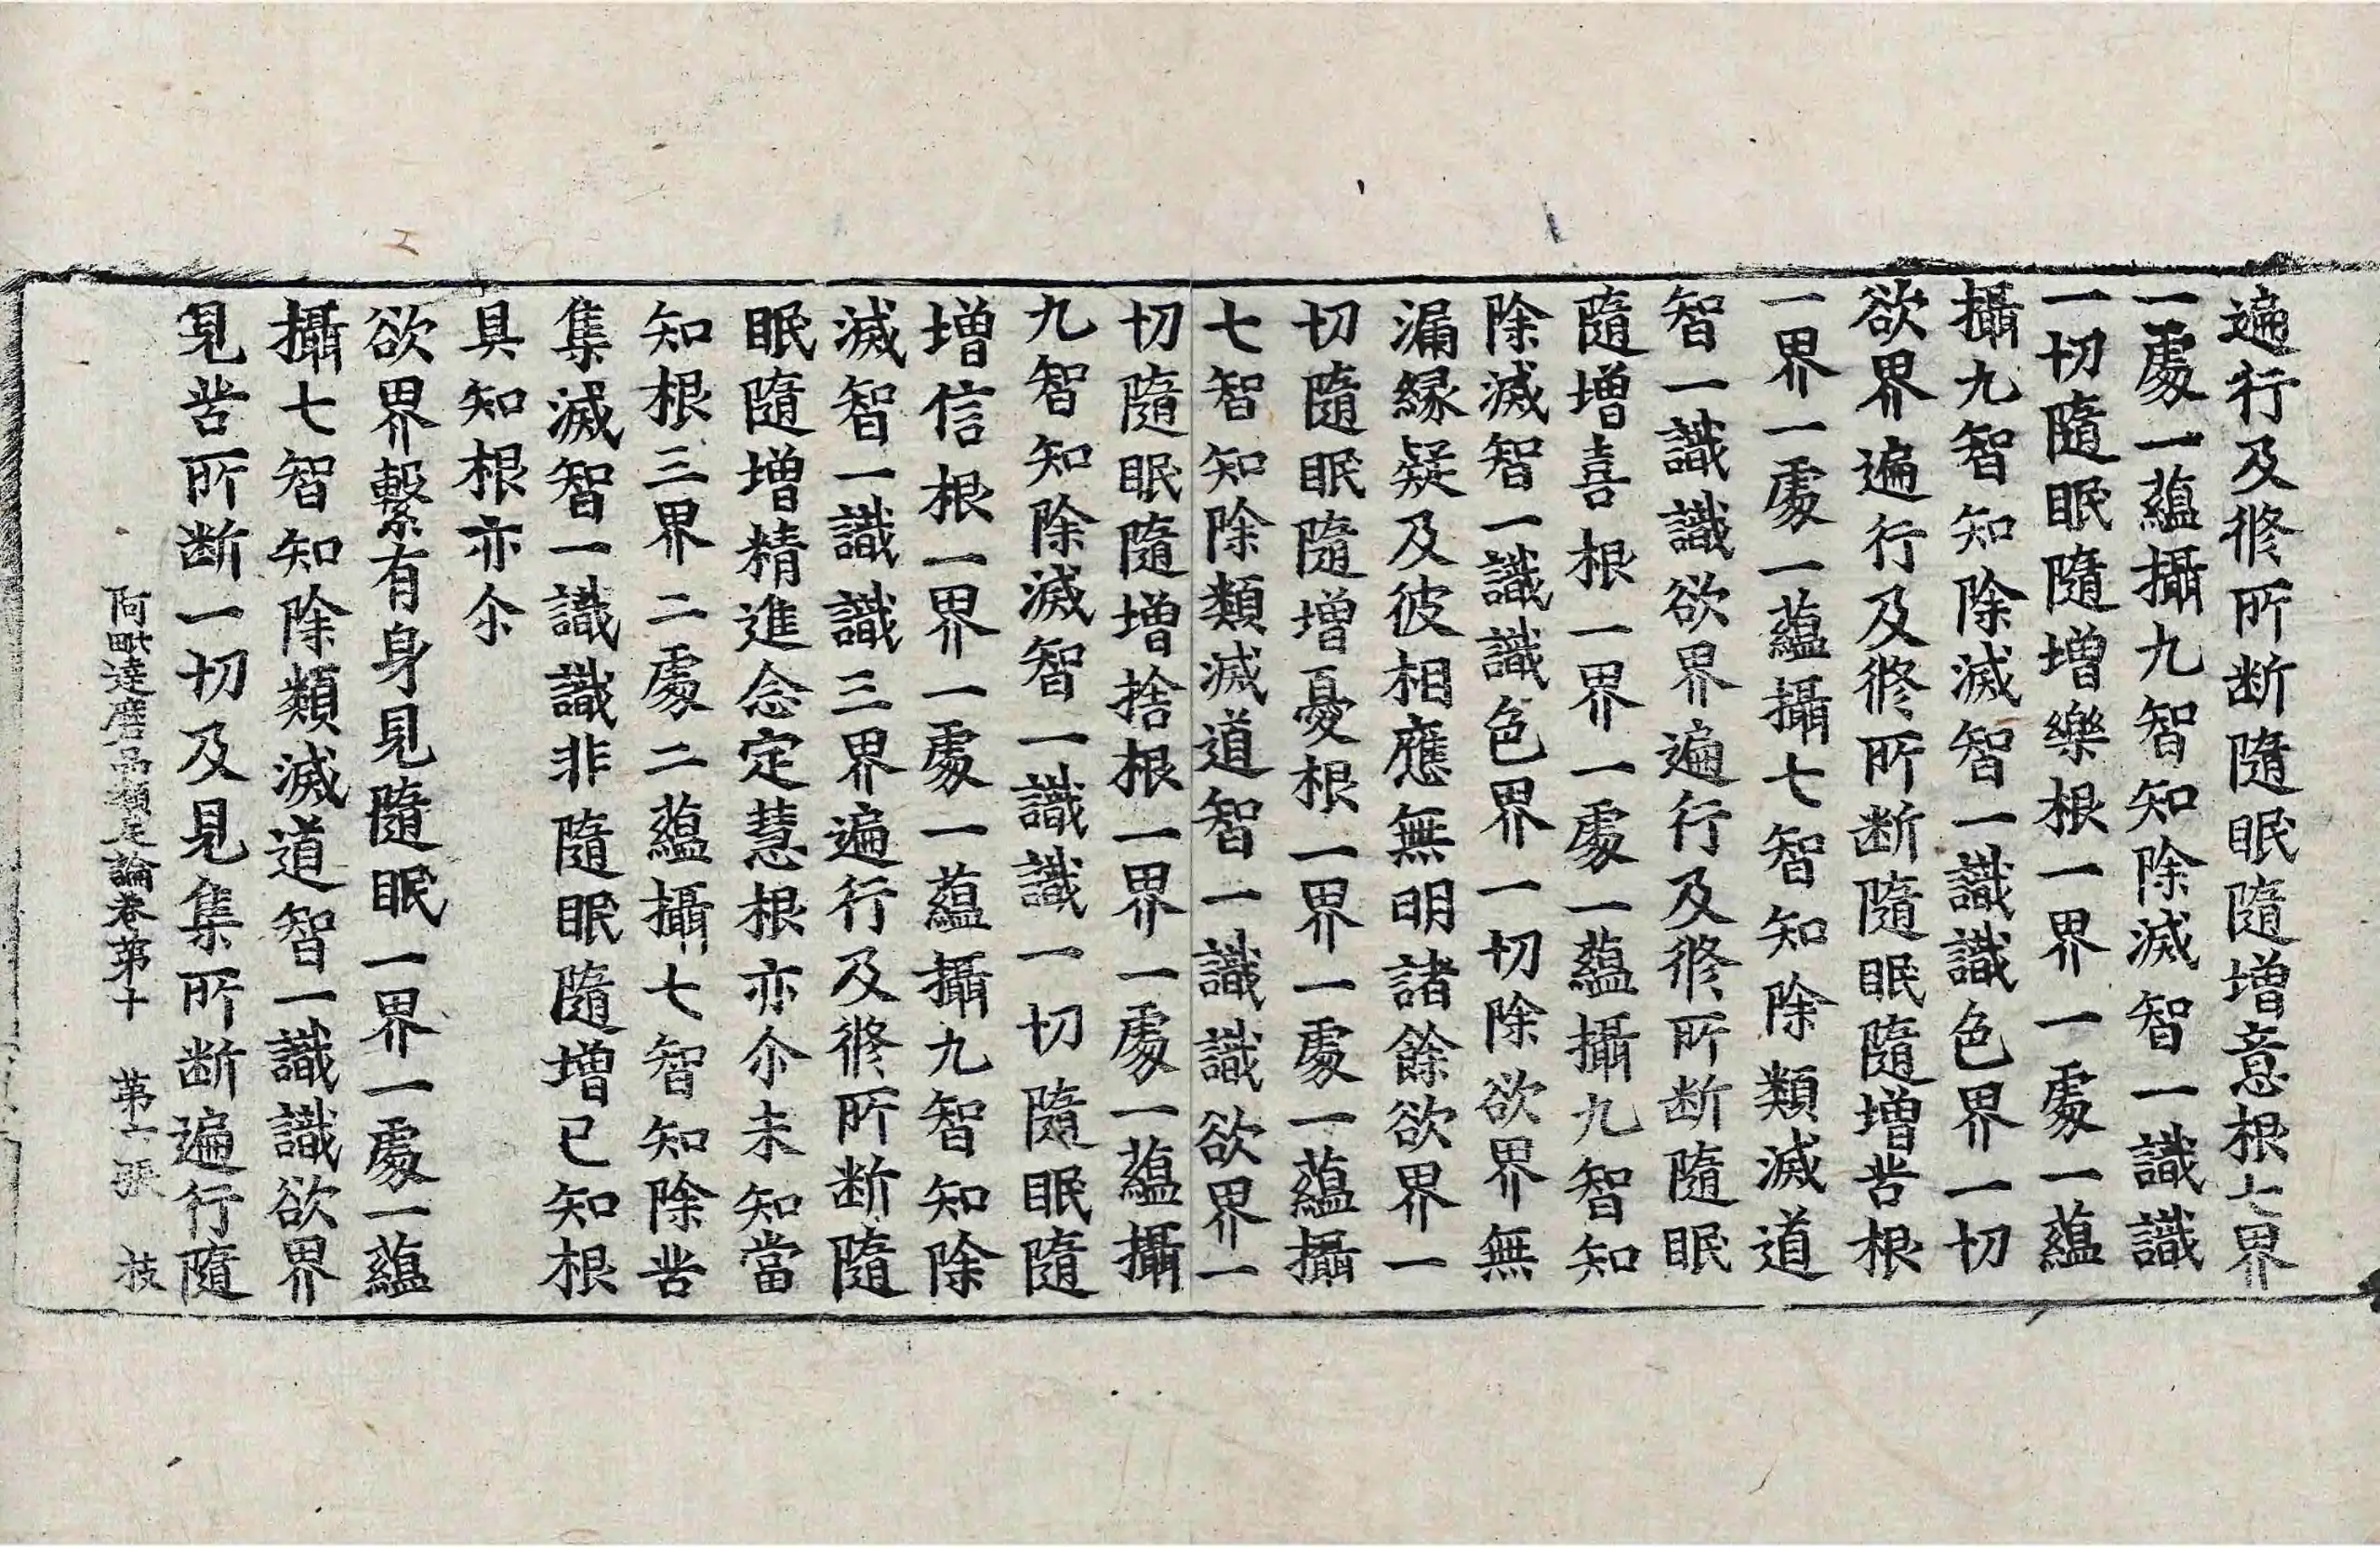 遍行及修所断隨眠隨增意根七界
一處一蘊攝九智知除滅智一識識
一切隨眠隨增樂根一界一處一蘊
攝九智知除滅智一識識色界一切
欲界遍行及修所断隨眠隨增苦根
一界一處一蘊攝七智知除類滅道
智一識識欲界遍行及修所断隨眠
隨增喜根一界一處一蘊攝九智知
除滅智一識識色界一切除欲界無
漏縁疑及彼相應無明諸餘欲界一
切隨眠隨增憂根一界一處一蘊攝
七智知除類滅道智一識識欲界一
切隨眠隨增捨根一界一處一蘊攝
九智知除滅智一識識一切隨眠隨
增信根一界一處一蘊攝九智知除
滅智一識識三界遍行及修所断隨
眠隨增精進念定慧根亦尒未知當
知根三界二處二蘊攝七智知除苦
集滅智一識識非隨眠隨增已知根
具知根亦尒
欲界繫有身見隨眠一界一處一蘊
攝七智知除類滅道智一識識欲界
見苦所断一切及見集所断遍行隨
阿毗達磨品類足論卷第十 第二張 技